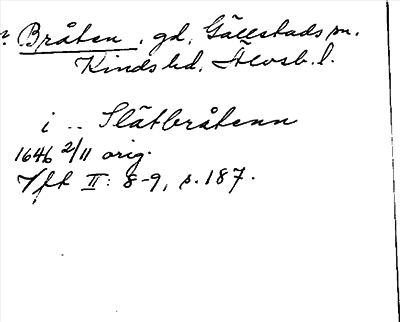 Bråten, gd, Gällstads sn.
Kinds hd, Älvsb. l.
i .. Slätbråtenn
1646 2/11 orig.
Vft II: 8-9, s. 187.